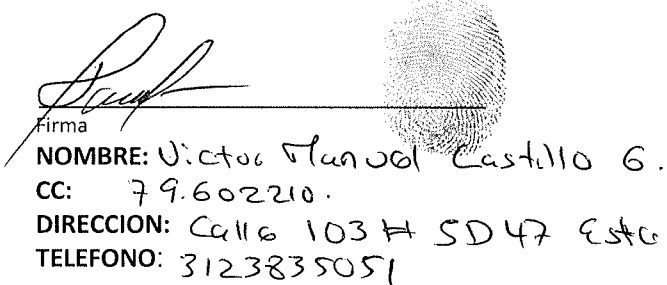 Firma
NOMBRE: Victor Manuel Castillo G.
CC: 79.602210.
DIRECCION: Calle 103 # 5D47 Este
TELEFONO: 3123835051